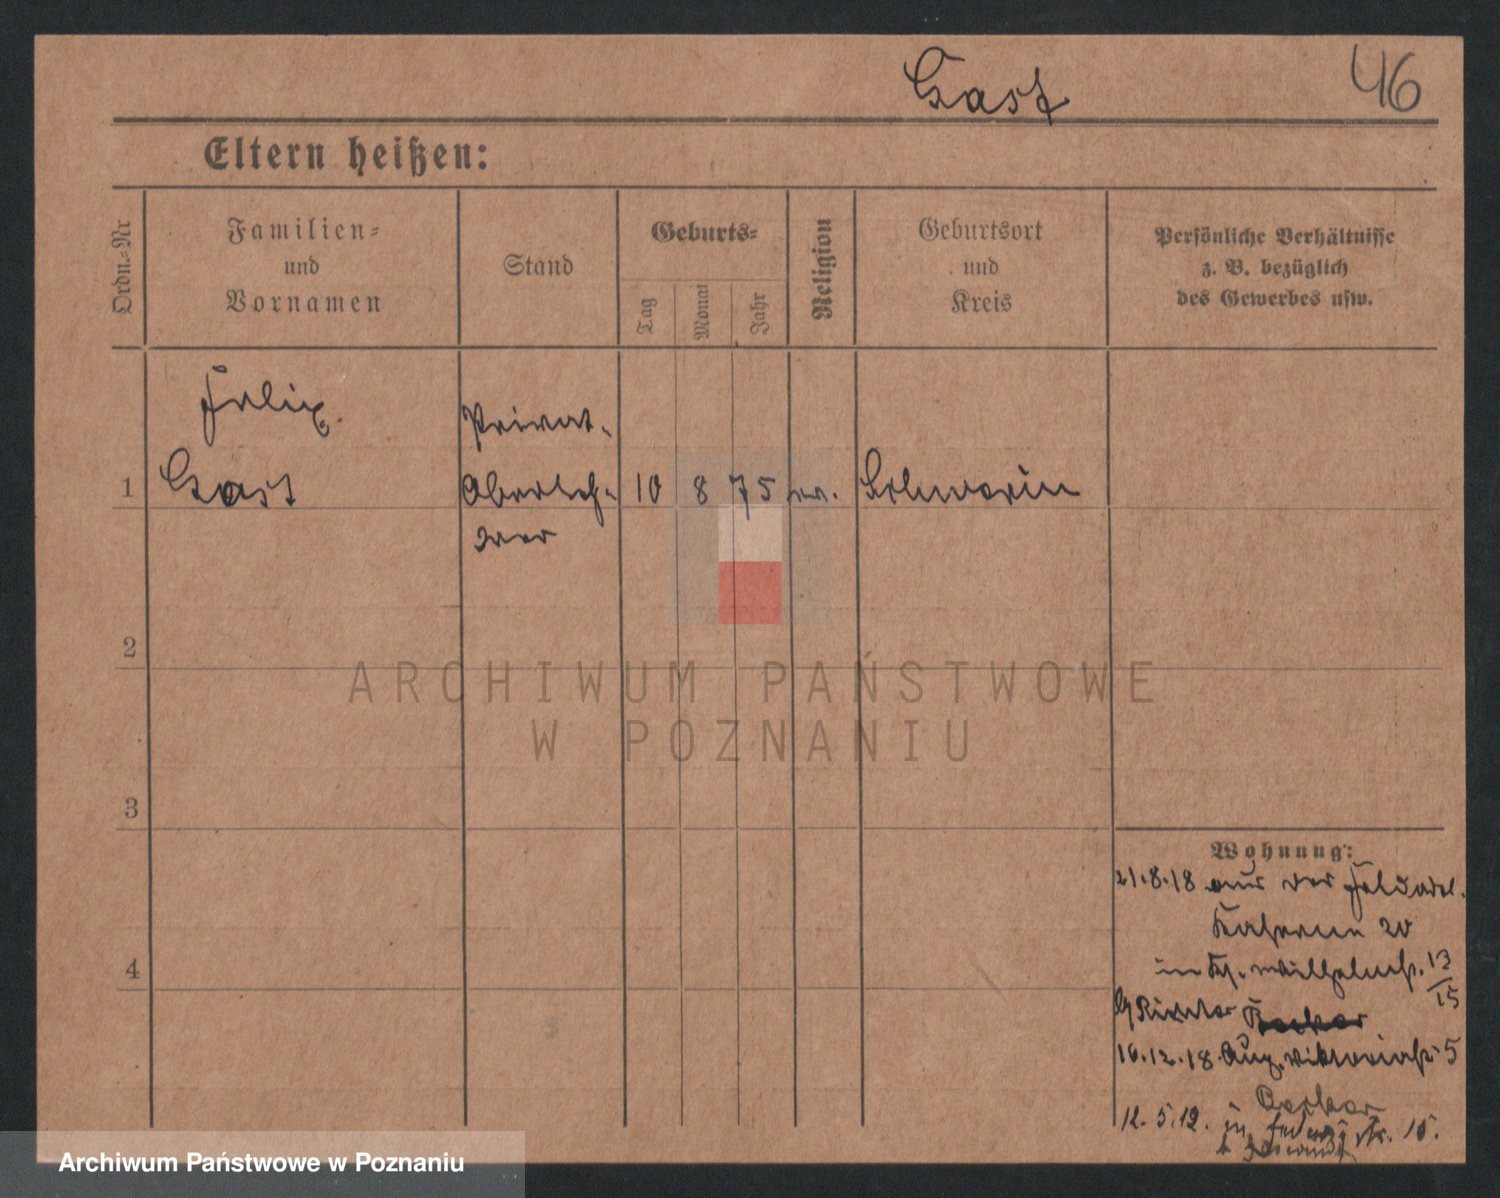 Gast 46
Eltern heißen:
Ordn.-Nr
Familien-
und
Vornamen
Stand
Geburts-
Tag
Monat
Jahr
Religion
Geburtsort
und
Kreis
Persönliche Verhältnisse
z. B. bezüglich
des Gewerbes usw.
Felix
Privat-
1 Gast Oberleh- 10 8 75 ev. Schwerin
rer
2
3
4
Wohnung:
21.8.18 aus der Feldart.
Kaserne 20
in Ks. Wilhelmstr. 13/15
16.12.18 Aug. Viktoriastr. 5
12.5.19. in str. 15.
ARCHIWUM PAŃSTWOWE
W POZNANIU
Archiwum Państwowe w Poznaniu